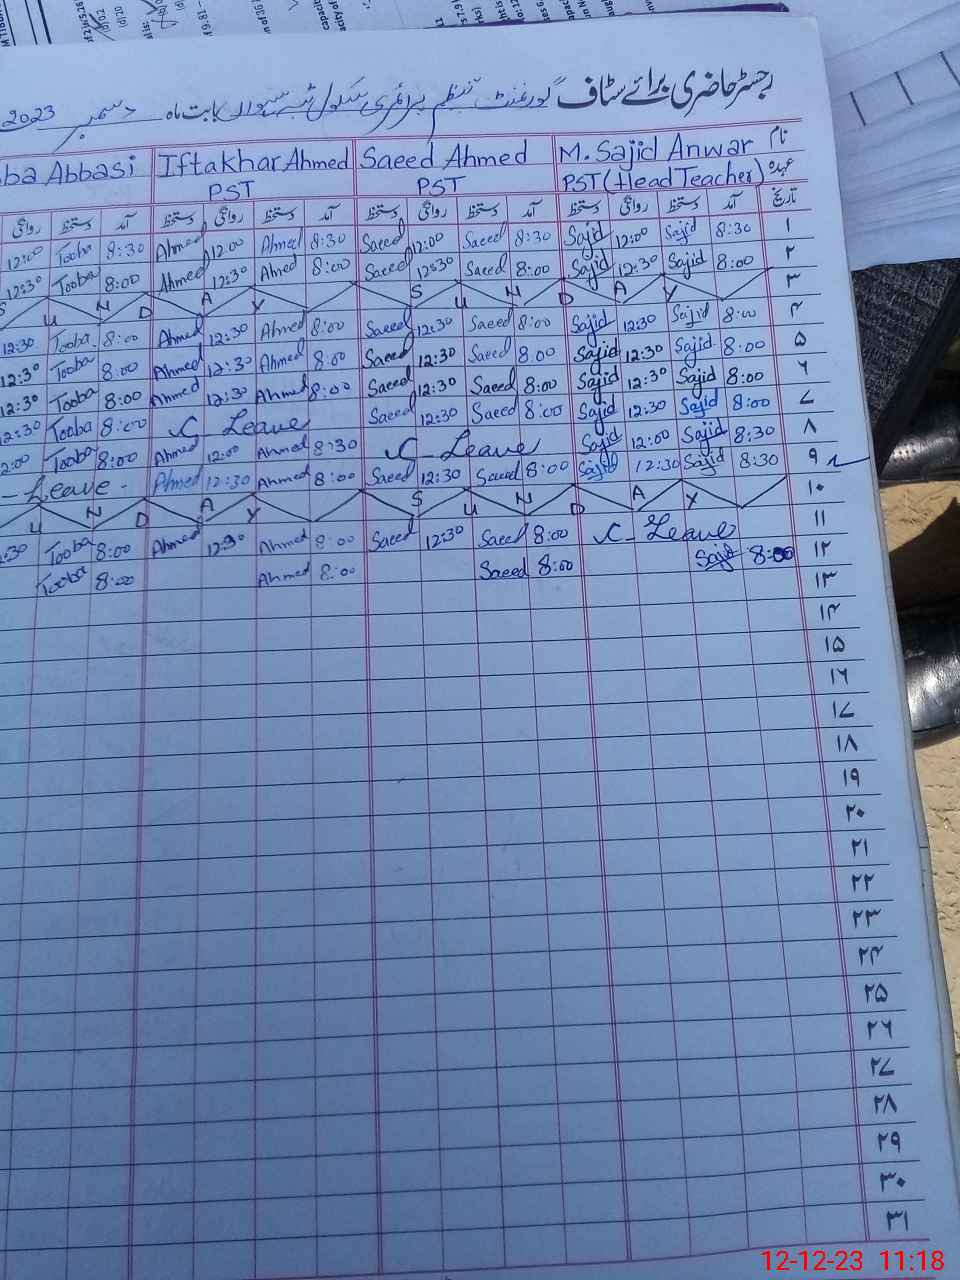 رجسٹر حاضری برائے سٹاف گورنمنٹ پرائمری سکول بابت ماہ دسمبر 2023
نام M. Sajid Anwar Saeed Ahmed Iftakhar Ahmed ba Abbasi
عہدہ PST (Head Teacher) PST PST
تاریخ آمد دستخط روانگی دستخط آمد دستخط روانگی دستخط آمد دستخط روانگی دستخط آمد دستخط روانگی
۱ 8:30 Sajid 12:00 Sajid 8:30 Saeed 12:00 Saeed 8:30 Ahmed 12:00 Ahmed 8:30 Tooba 12:00
۲ 8:00 Sajid 12:30 Sajid 8:00 Saeed 12:30 Saeed 8:00 Ahmed 12:30 Ahmed 8:00 Tooba 12:30
۳ S U N D A Y S U N D A Y
۴ 8:00 Sajid 12:30 Sajid 8:00 Saeed 12:30 Saeed 8:00 Ahmed 12:30 Ahmed 8:00 Tooba 12:30
۵ 8:00 Sajid 12:30 Sajid 8:00 Saeed 12:30 Saeed 8:00 Ahmed 12:30 Ahmed 8:00 Tooba 12:30
۶ 8:00 Sajid 12:30 Sajid 8:00 Saeed 12:30 Saeed 8:00 Ahmed 12:30 Ahmed 8:00 Tooba 12:30
۷ 8:00 Sajid 12:30 Sajid 8:00 Saeed 12:30 Saeed C-Leave 8:00 Tooba 12:30
۸ 8:30 Sajid 12:00 Sajid C-Leave 8:30 Ahmed 12:00 Ahmed 8:00 Tooba 2:00
۹ 8:30 Sajid 12:30 Sajid 8:00 Saeed 12:30 Saeed 8:00 Ahmed 12:30 Ahmed -Leave-
۱۰ S U N D A Y U N D A Y
۱۱ C-Leave 8:00 Saeed 12:30 Saeed 8:00 Ahmed 12:30 Ahmed 8:00 Tooba 2:30
۱۲ 8:00 Sajid 8:00 Saeed 8:00 Ahmed 8:00 Tooba
۱۳
۱۴
۱۵
۱۶
۱۷
۱۸
۱۹
۲۰
۲۱
۲۲
۲۳
۲۴
۲۵
۲۶
۲۷
۲۸
۲۹
۳۰
۳۱
12-12-23 11:18